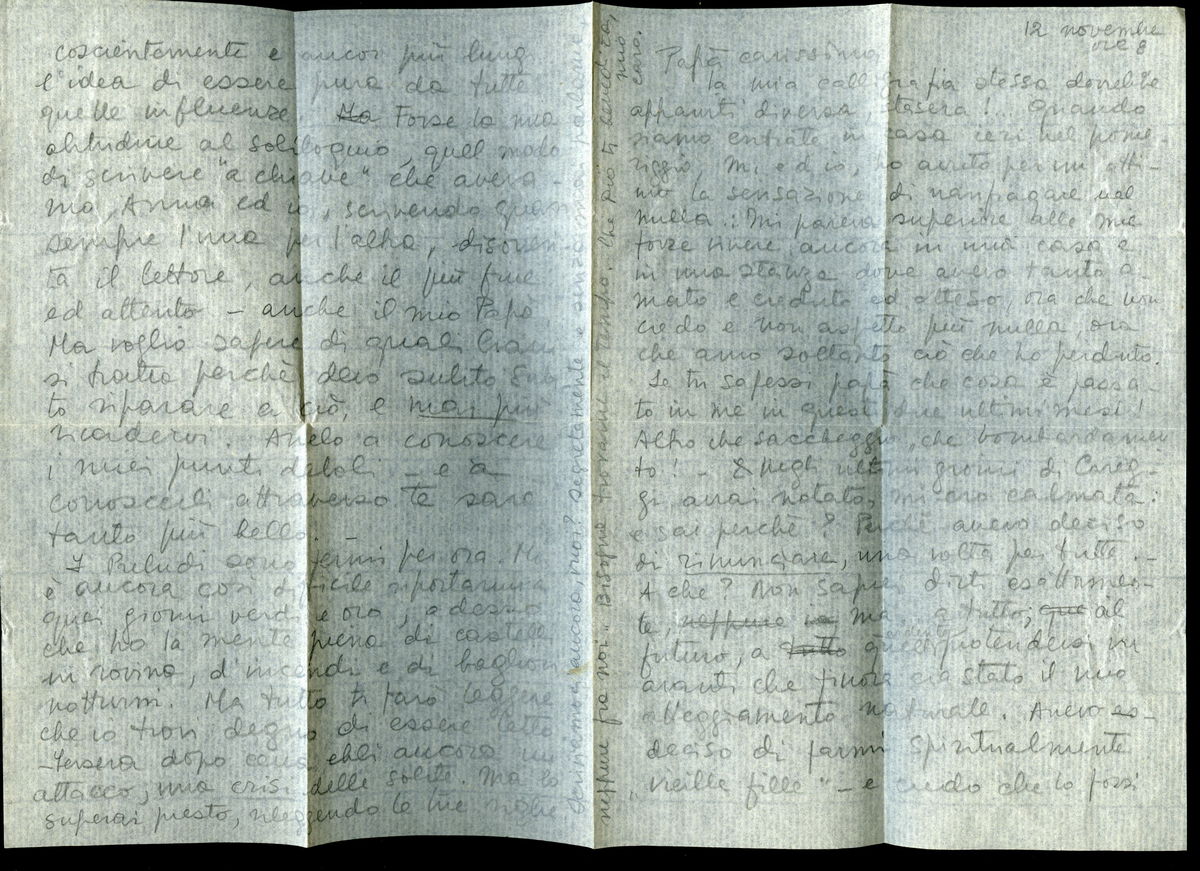 12 novembre
ore 8
Papà carissimo,
la mia calligrafia stessa dovrebbe
apparirti diversa, stasera!... Quando
siamo entrate in casa ieri nel pome-
riggio, M. ed io, ho avuto per un atti-
mo la sensazione di naufragare nel
nulla.: Mi pareva superiore alle mie
forze vivere ancora in una casa e
in una stanza dove avevo tanto a-
mato e creduto ed atteso, ora che non
credo e non aspetto più nulla, ora
che amo soltanto ciò che ho perduto.
Se tu sapessi papà che cosa è passa-
to in me in questi due ultimi mesi!
Altro che saccheggio, che bombardamen
to! - Negli ultimi giorni di Careg-
gi avrai notato, mi ero calmata:
e sai perché? Perché avevo deciso
di rinunciare, una volta per tutte. -
A che? Non saprei dirti esattamen-
te, neppure ma a tutto, que al
futuro, a tutto quel protendersi in
avanti che finora era stato il mio
atteggiamento naturale. Avevo
deciso di farmi spiritualmente
"vieille fille" - e credo che lo fossi
coscientemente e ancor più lungi
l'idea di essere pura da tutte
quelle influenze. Ma Forse la mia
abitudine al soliloquio, quel modo
di scrivere "a chiave" che aveva-
mo, Anna ed io, scrivendo quasi
sempre l'una per l'altra, disorien-
ta il lettore, anche il più fine
ed attento - anche il mio Papà.
Ma voglio sapere di quali brani
si tratta perchè devo subito
to riparare a ciò, e mai più
ricadervi. Anelo a conoscere
i miei punti deboli - e a
conoscerli attraverso te sarà
tanto più bello.
I Preludi sono fermi per ora. Mi
è ancora così difficile riportarmi a
quei giorni verdi e oro, adesso
che ho la mente piena di castelli
in rovina, d'incendi e di bagliori
notturni. Ma tutto ti farò leggere
che io trovi degno di essere letto
- Iersera dopo cena ebbi ancora un
attacco, una crisi delle solite. Ma la
superai presto, rileggendo le tue
Scriviamoci ancora, vuoi? Segretamente e senza mai parlarne,
neppure fra noi.. Bisogna trovarne il tempo. Che Dio ti benedica,
mio
caro.